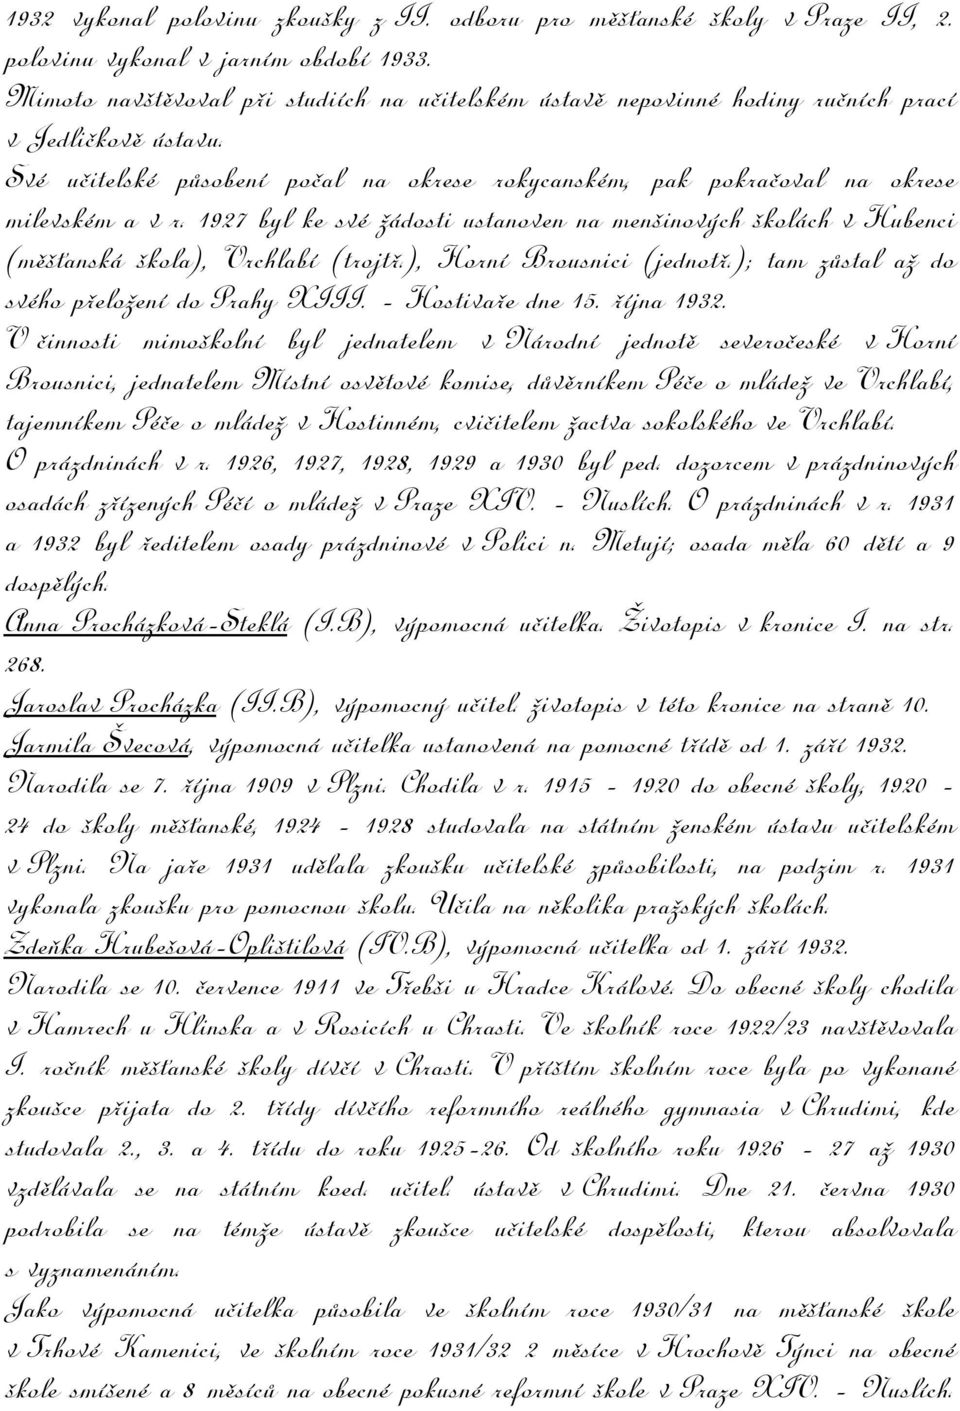 1932 vykonal polovinu zkoušky z II. odboru pro měšťanské školy v Praze II, 2.
polovinu vykonal v jarním období 1933.
Mimoto navštěvoval při studiích na učitelském ústavě nepovinné hodiny ručních prací
v Jedličkově ústavu.
Své učitelské působení počal na okrese rokycanském, pak pokračoval na okrese
milevském a v r. 1927 byl ke své žádosti ustanoven na menšinových školách v Hubenci
(měšťanská škola), Vrchlabí (trojtř.), Horní Brousnici (jednotř.); tam zůstal až do
svého přeložení do Prahy XIII. - Hostivaře dne 15. října 1932.
V činnosti mimoškolní byl jednatelem v Národní jednotě severočeské v Horní
Brousnici, jednatelem Místní osvětové komise, důvěrníkem Péče o mládež ve Vrchlabí,
tajemníkem Péče o mládež v Hostinném, cvičitelem žactva sokolského ve Vrchlabí.
O prázdninách v r. 1926, 1927, 1928, 1929 a 1930 byl ped. dozorcem v prázdninových
osadách zřízených Péčí o mládež v Praze XIV. - Nuslích. O prázdninách v r. 1931
a 1932 byl ředitelem osady prázdninové v Polici n. Metují; osada měla 60 dětí a 9
dospělých.
Anna Procházková-Steklá (I.B), výpomocná učitelka. Životopis v kronice I. na str.
268.
Jaroslav Procházka (II.B), výpomocný učitel. životopis v této kronice na straně 10.
Jarmila Švecová, výpomocná učitelka ustanovená na pomocné třídě od 1. září 1932.
Narodila se 7. října 1909 v Plzni. Chodila v r. 1915 - 1920 do obecné školy, 1920 -
24 do školy měšťanské, 1924 - 1928 studovala na státním ženském ústavu učitelském
v Plzni. Na jaře 1931 udělala zkoušku učitelské způsobilosti, na podzim r. 1931
vykonala zkoušku pro pomocnou školu. Učila na několika pražských školách.
Zdeňka Hrubešová-Oplištilová (IV.B), výpomocná učitelka od 1. září 1932.
Narodila se 10. července 1911 ve Třebši u Hradce Králové. Do obecné školy chodila
v Hamrech u Hlinska a v Rosicích u Chrasti. Ve školník roce 1922/23 navštěvovala
I. ročník měšťanské školy dívčí v Chrasti. V příštím školním roce byla po vykonané
zkoušce přijata do 2. třídy dívčího reformního reálného gymnasia v Chrudimi, kde
studovala 2., 3. a 4. třídu do roku 1925-26. Od školního roku 1926 - 27 až 1930
vzdělávala se na státním koed. učitel. ústavě v Chrudimi. Dne 21. června 1930
podrobila se na témže ústavě zkoušce učitelské dospělosti, kterou absolvovala
s vyznamenáním.
Jako výpomocná učitelka působila ve školním roce 1930/31 na měšťanské škole
v Trhové Kamenici, ve školním roce 1931/32 2 měsíce v Hrochově Týnci na obecné
škole smíšené a 8 měsíců na obecné pokusné reformní škole v Praze XIV. - Nuslích.